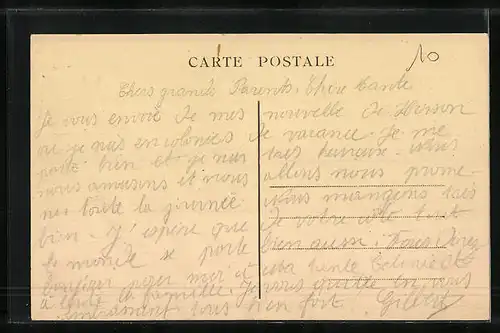 CARTE POSTALE
10
Chers grands Parents, Chère Tante
Je vous envoie de mes nouvelle de Hirson
où je suis en colonies de vacance. Je me
porte bien et je suis très heureux. Nous
nous amusons et nous allons nous prome-
ner toute la journée. Nous mangeons très
bien. J'espère que de votre côté tout
le monde se porte bien aussi. Vous
pour moi
à toute la famille. Je vous quitte en vous
embrassant tous bien fort. Gilbert